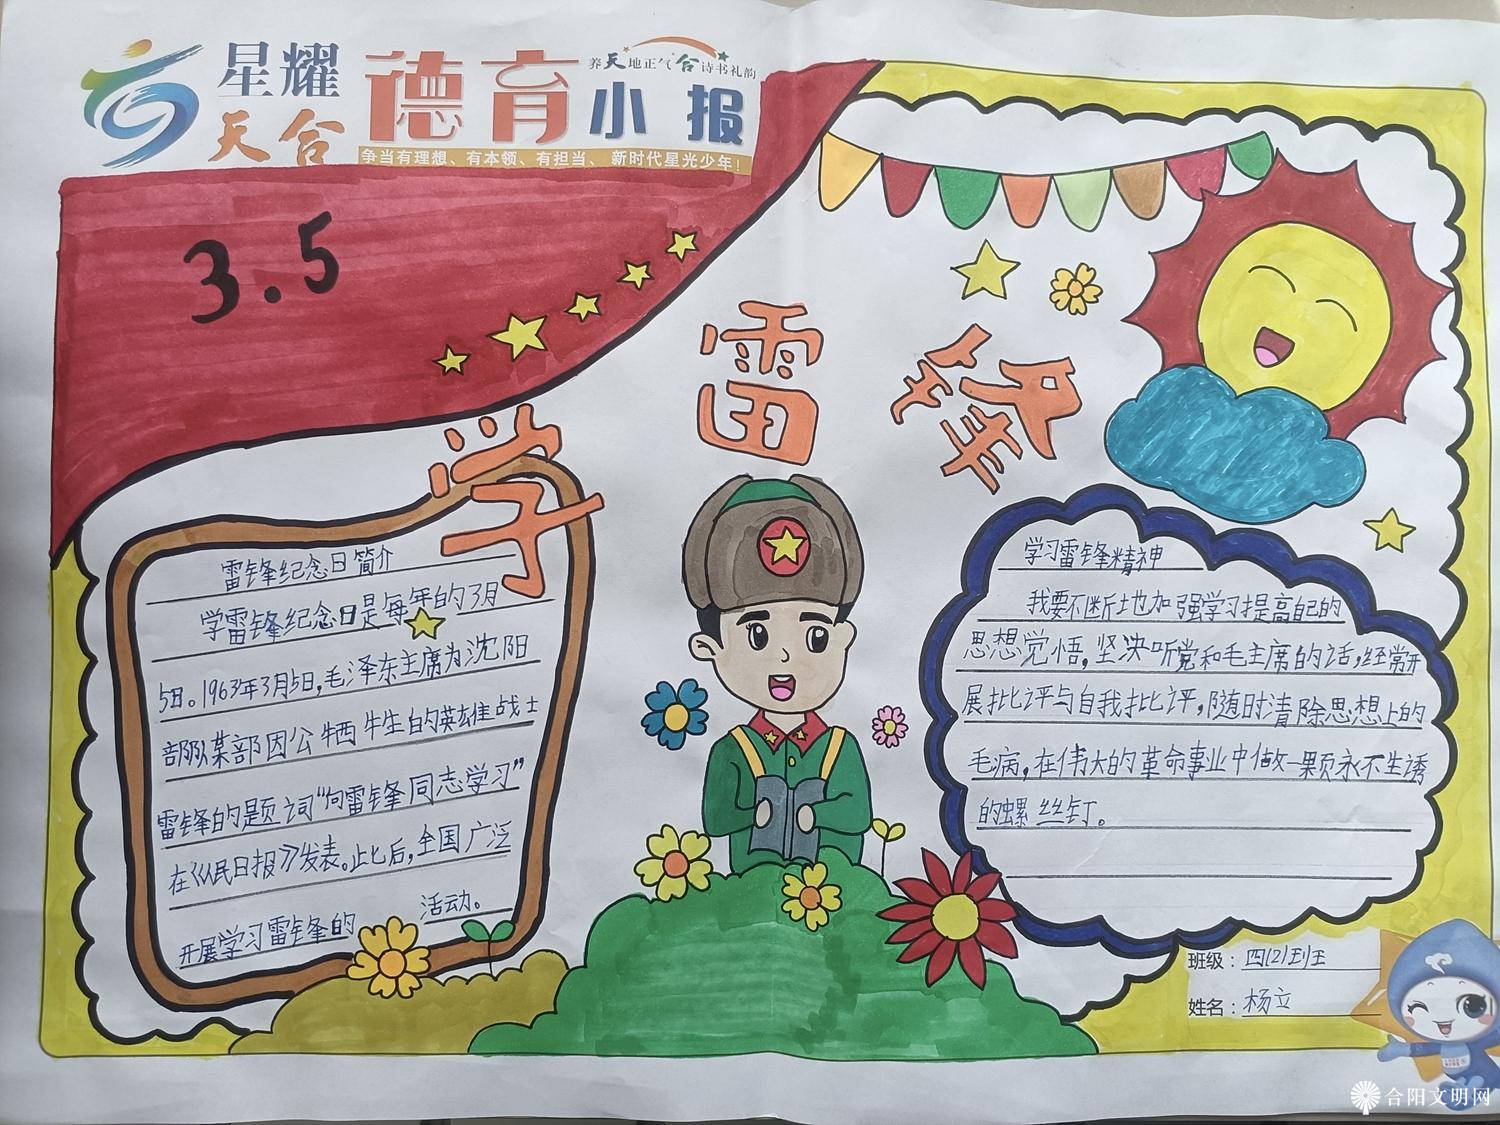 星耀
天合
德育小报
养天地正气 合诗书礼韵
争当有理想、有本领、有担当、新时代星光少年！
3.5
学雷锋
雷锋纪念日简介
学雷锋纪念日是每年的3月
5日。1963年3月5日,毛泽东主席为沈阳
部队某部因公牺牲的英雄战士
雷锋的题词“向雷锋同志学习”
在《人民日报》发表。此后,全国广泛
开展学习雷锋的活动。
学习雷锋精神
我要不断地加强学习提高自己的
思想觉悟,坚决听党和毛主席的话,经常开
展批评与自我批评,随时清除思想上的
毛病,在伟大的革命事业中做一颗永不生诱
的螺丝钉。
班级：四(2)班
姓名：杨立
合阳文明网